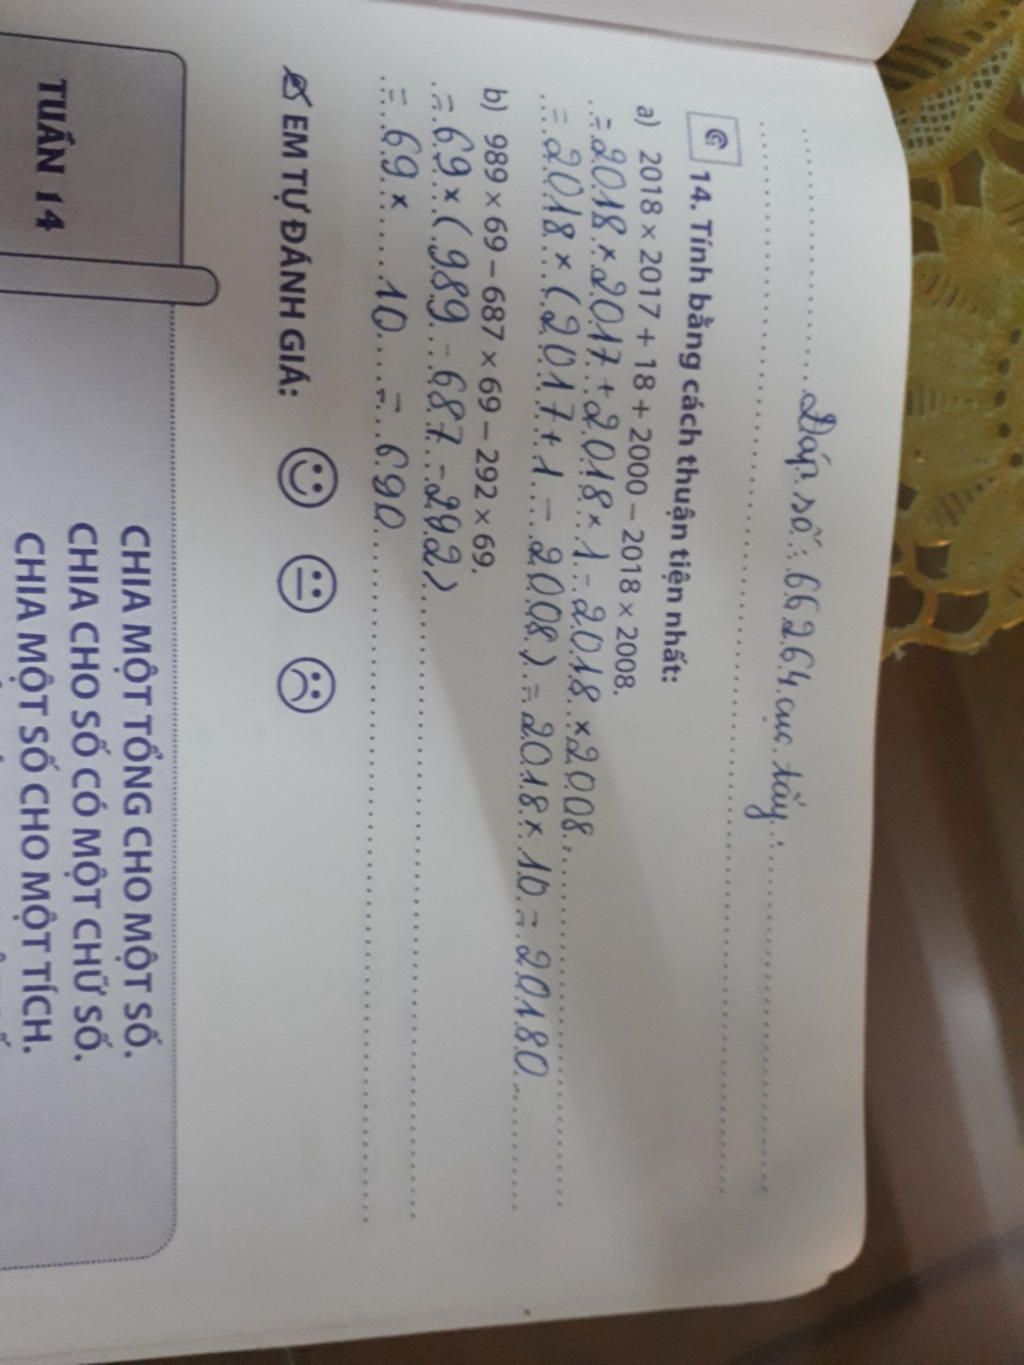 Đáp số : 66264 cục tẩy.
14. Tính bằng cách thuận tiện nhất:
a) 2018 × 2017 + 18 + 2000 – 2018 × 2008.
= 2018 × 2017 + 2018 × 1 - 2018 × 2008.
= 2018 × ( 2017 + 1 - 2008 ) = 2018 × 10 = 20180
b) 989 × 69 – 687 × 69 – 292 × 69.
= 69 × ( 989 - 687 - 292 )
= 69 × 10 = 690
EM TỰ ĐÁNH GIÁ:
TUẦN 14
CHIA MỘT TỔNG CHO MỘT SỐ.
CHIA CHO SỐ CÓ MỘT CHỮ SỐ.
CHIA MỘT SỐ CHO MỘT TÍCH.